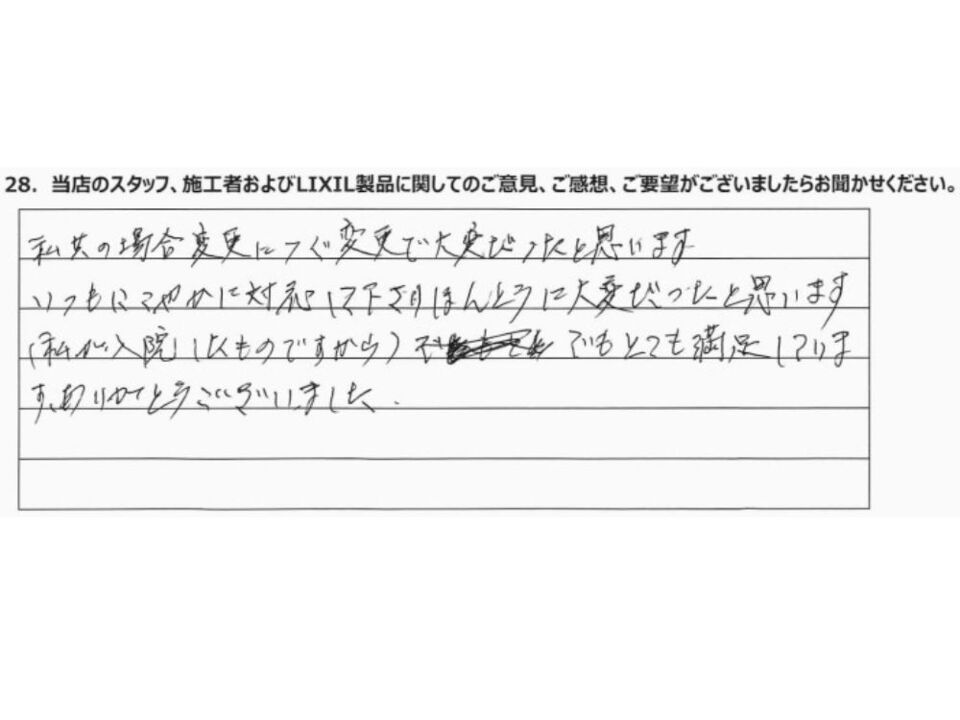 28. 当店のスタッフ、施工者およびLIXIL製品に関してのご意見、ご感想、ご要望がございましたらお聞かせください。
私共の場合変更につぐ変更で大変だったと思います
いつもにこやかに対応して下さりほんとうに大変だったと思います
(私が入院したものですから) でもとても満足していま
す。ありがとうございました.